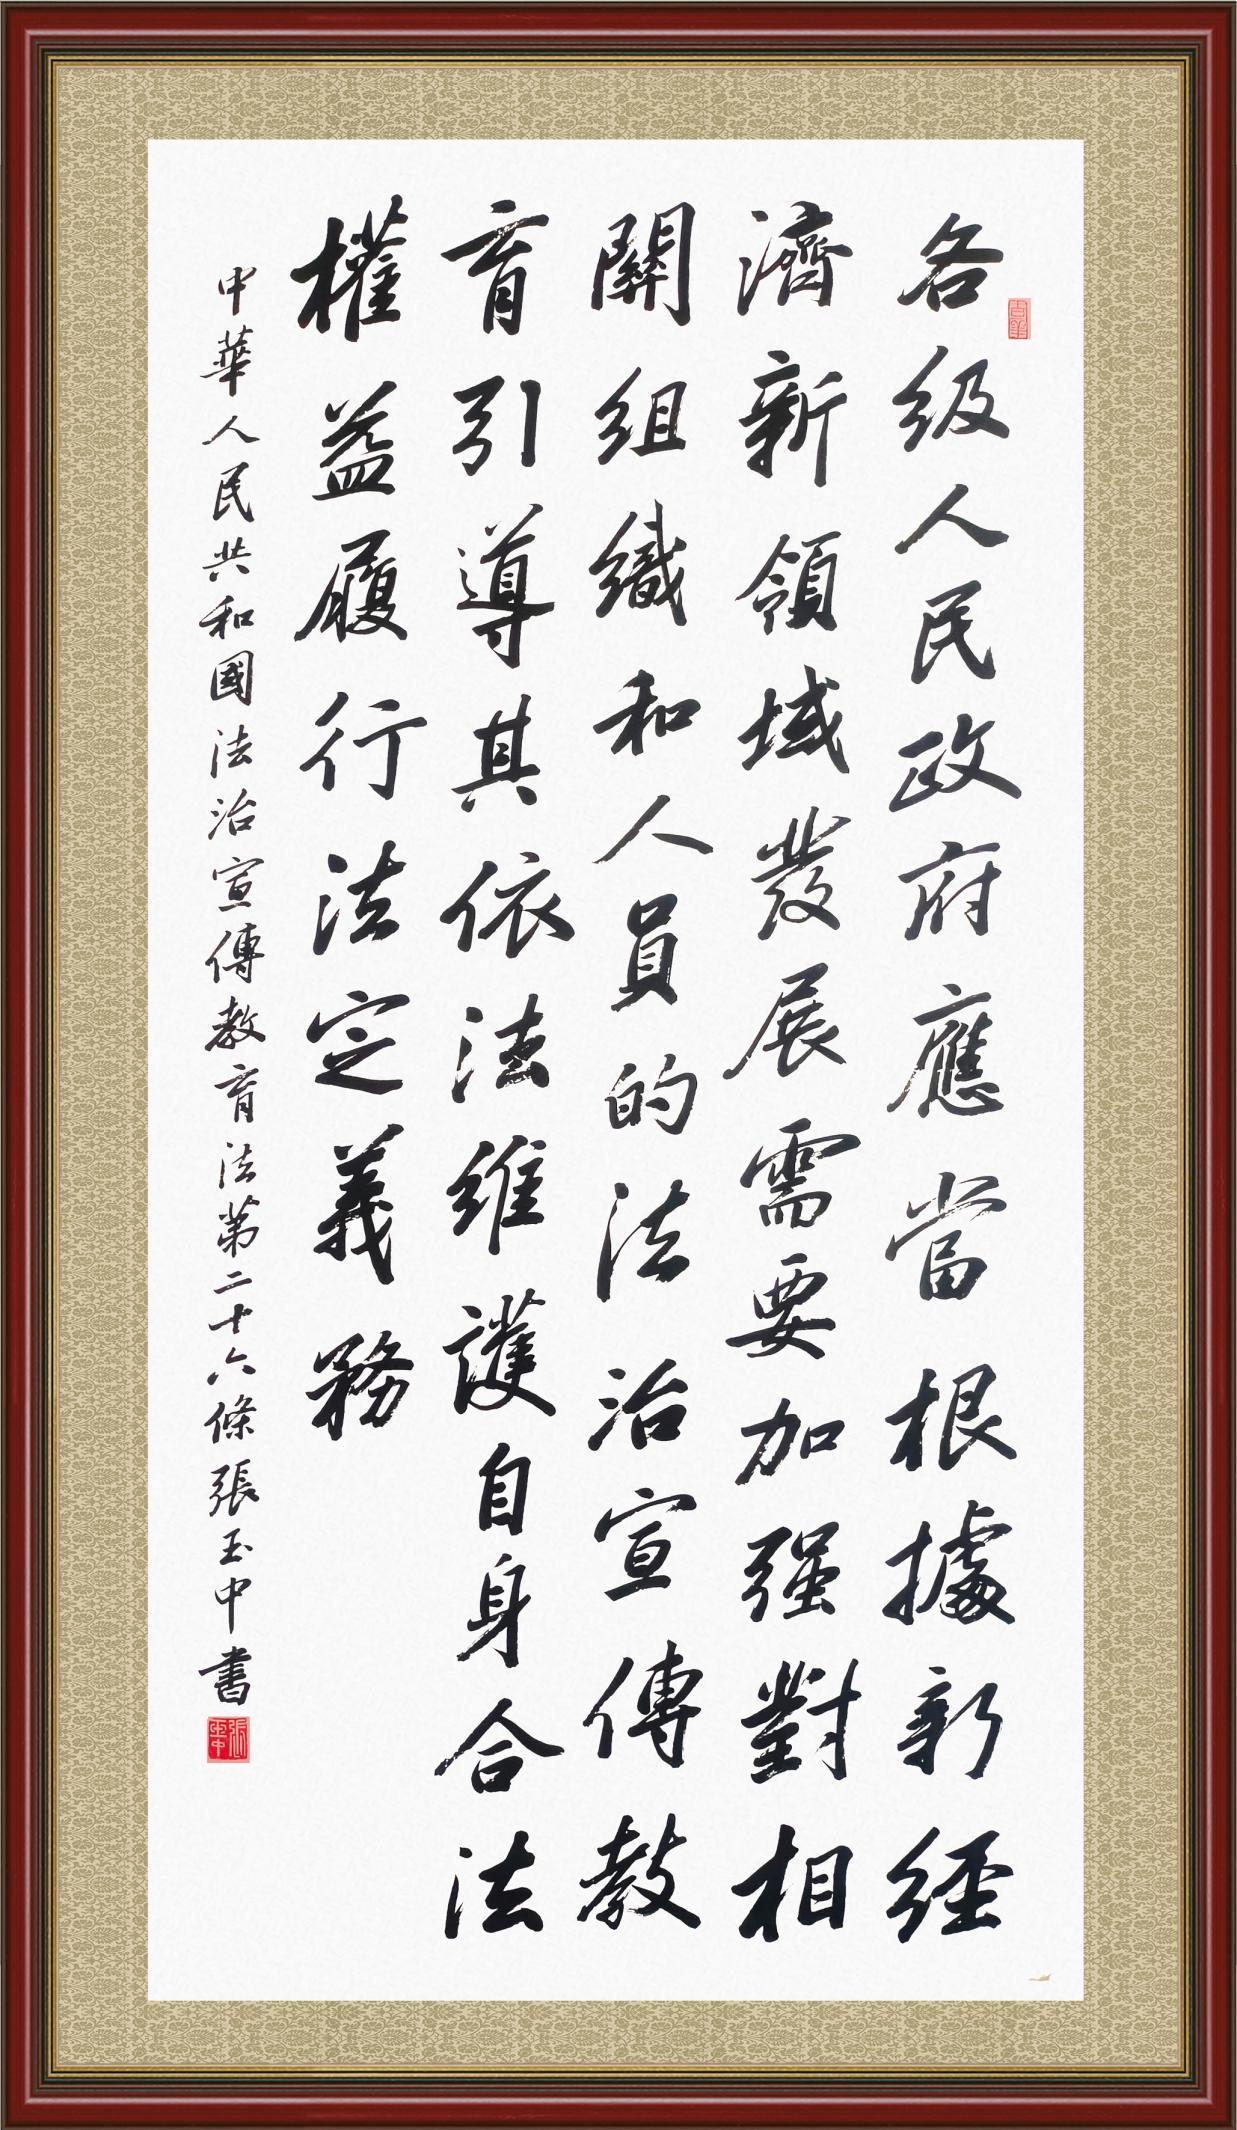 各级人民政府應當根據新經
濟新領域發展需要加强對相
關組織和人員的法治宣傳教
育引導其依法維護自身合法
權益履行法定義務
中華人民共和國法治宣傳教育法第二十六條張玉中書
張玉中